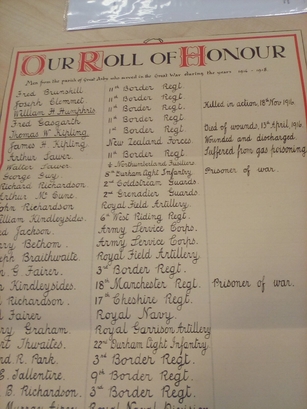 OUR ROLL OF HONOUR
Men from the parish of Great Asby who served in the Great War during the years 1914 - 1918.
Fred Brunskill 11th Border Regt.
Joseph Clemmet 11th Border Regt.
William H Humphris 11th Border Regt. Killed in action, 18th Nov. 1916.
Fred Gasgarth 1st Border Regt.
Thomas W. Kipling 1st Border Regt. Died of wounds, 13th April, 1916.
James F. Kipling New Zealand Forces. Wounded and discharged.
Arthur Sawer 11th Border Regt. Suffered from gas poisoning.
Walter Sawer Northumberland Fusiliers
George Guy 8th Durham Light Infantry. Prisoner of war.
Richard Richardson 2nd Coldstream Guards
Arthur M. Cox 2nd Grenadier Guards
John Richardson Royal Field Artillery.
William Kindleysides. 6th West Riding Regt.
Jackson. Army Service Corps.
Bethom. Army Service Corps.
Joseph Braithwaite. Royal Field Artillery.
G. Fairer. 3rd Border Regt.
Kindleysides. 18th Manchester Regt. Prisoner of war.
Richardson. 17th Cheshire Regt.
Fairer Royal Navy.
Graham. Royal Garrison Artillery
Thwaites. 22nd Durham Light Infantry.
R. Park. 3rd Border Regt.
Tallentire. 9th Border Regt.
B. Richardson. 3rd Border Regt.
Royal Naval Division